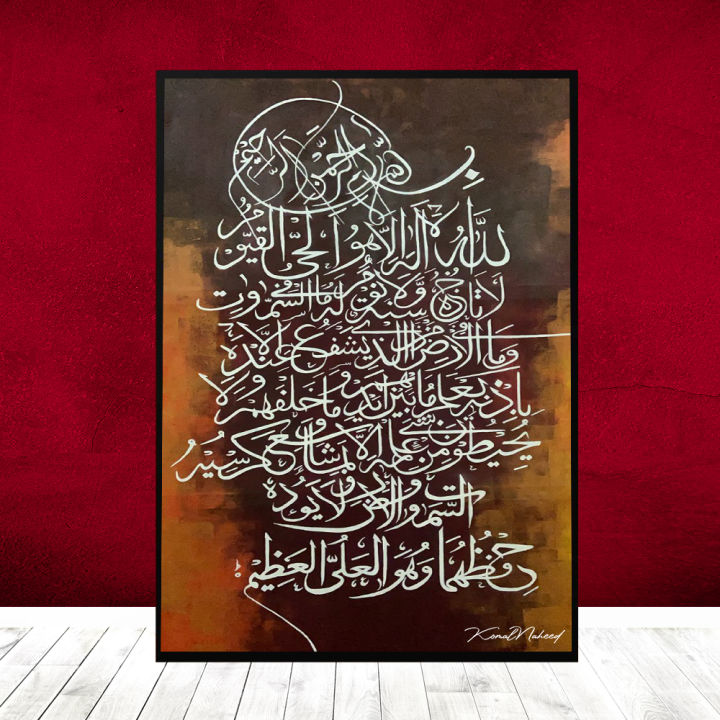 بسم الله الرحمن الرحيم
الله لا اله الا هو الحي القيوم
لا تاخذه سنة ولا نوم له ما في السموت
وما في الارض من ذا الذي يشفع عنده الا
باذنه يعلم ما بين ايديهم وما خلفهم ولا
يحيطون بشي من علمه الا بما شا وسع كرسيه
السموت والارض ولا يوده
حفظهما وهو العلي العظيم
Komal Naheed